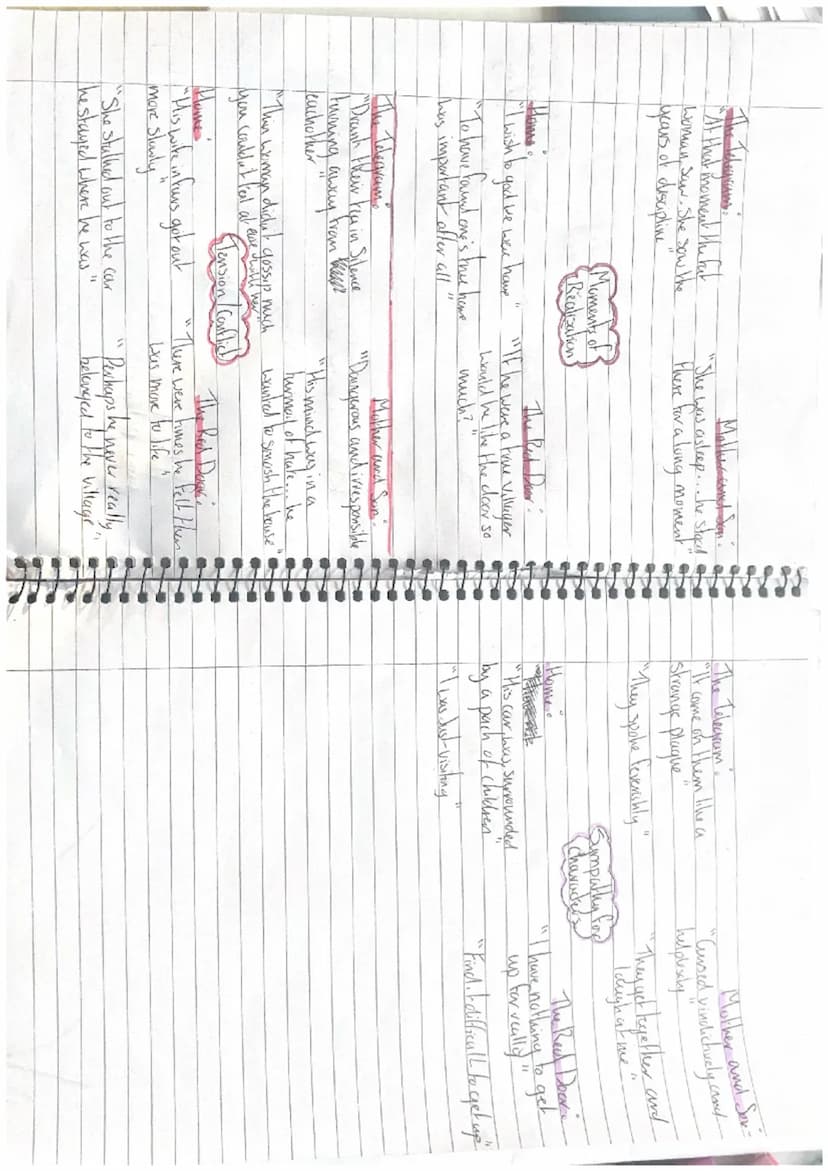 The Telegram:
"At that moment the fat
woman saw. She saw the
years of discipline"
Mother and Son:
"She was asleep... he stood
there for a long moment"
Moments of
Realisation
Home:
"I wish to god we were home"
"To have found one's true home
was important after all"
The Red Door:
"If he were a true villager
would he like the door so
much?"
The Telegram:
"Drank their tea in silence
turning away from
eachother"
"Thin woman didn't gossip much
you couldn't feel at ease with her"
Mother and Son:
"Dangerous and irresponsible"
"His mind was in a
turmoil of hate... he
wanted to smash the house"
Tension/Conflict
Home:
"His wife in furs got out
more slowly"
"She stalked out to the car
he stayed where he was"
The Red Door:
"There were times he felt there
was more to life"
"Perhaps he never really
belonged to the village"
The Telegram:
"It came on them like a
strange plague"
"They spoke feverishly"
Mother and Son:
"Cursed vindictively and
helplessly"
"They get together and
laugh at me"
Sympathy for
characters
Home:
"His car was surrounded
by a pack of children"
"I was just visiting"
The Red Door:
"I have nothing to get
up for really"
"Find it difficult to get up"